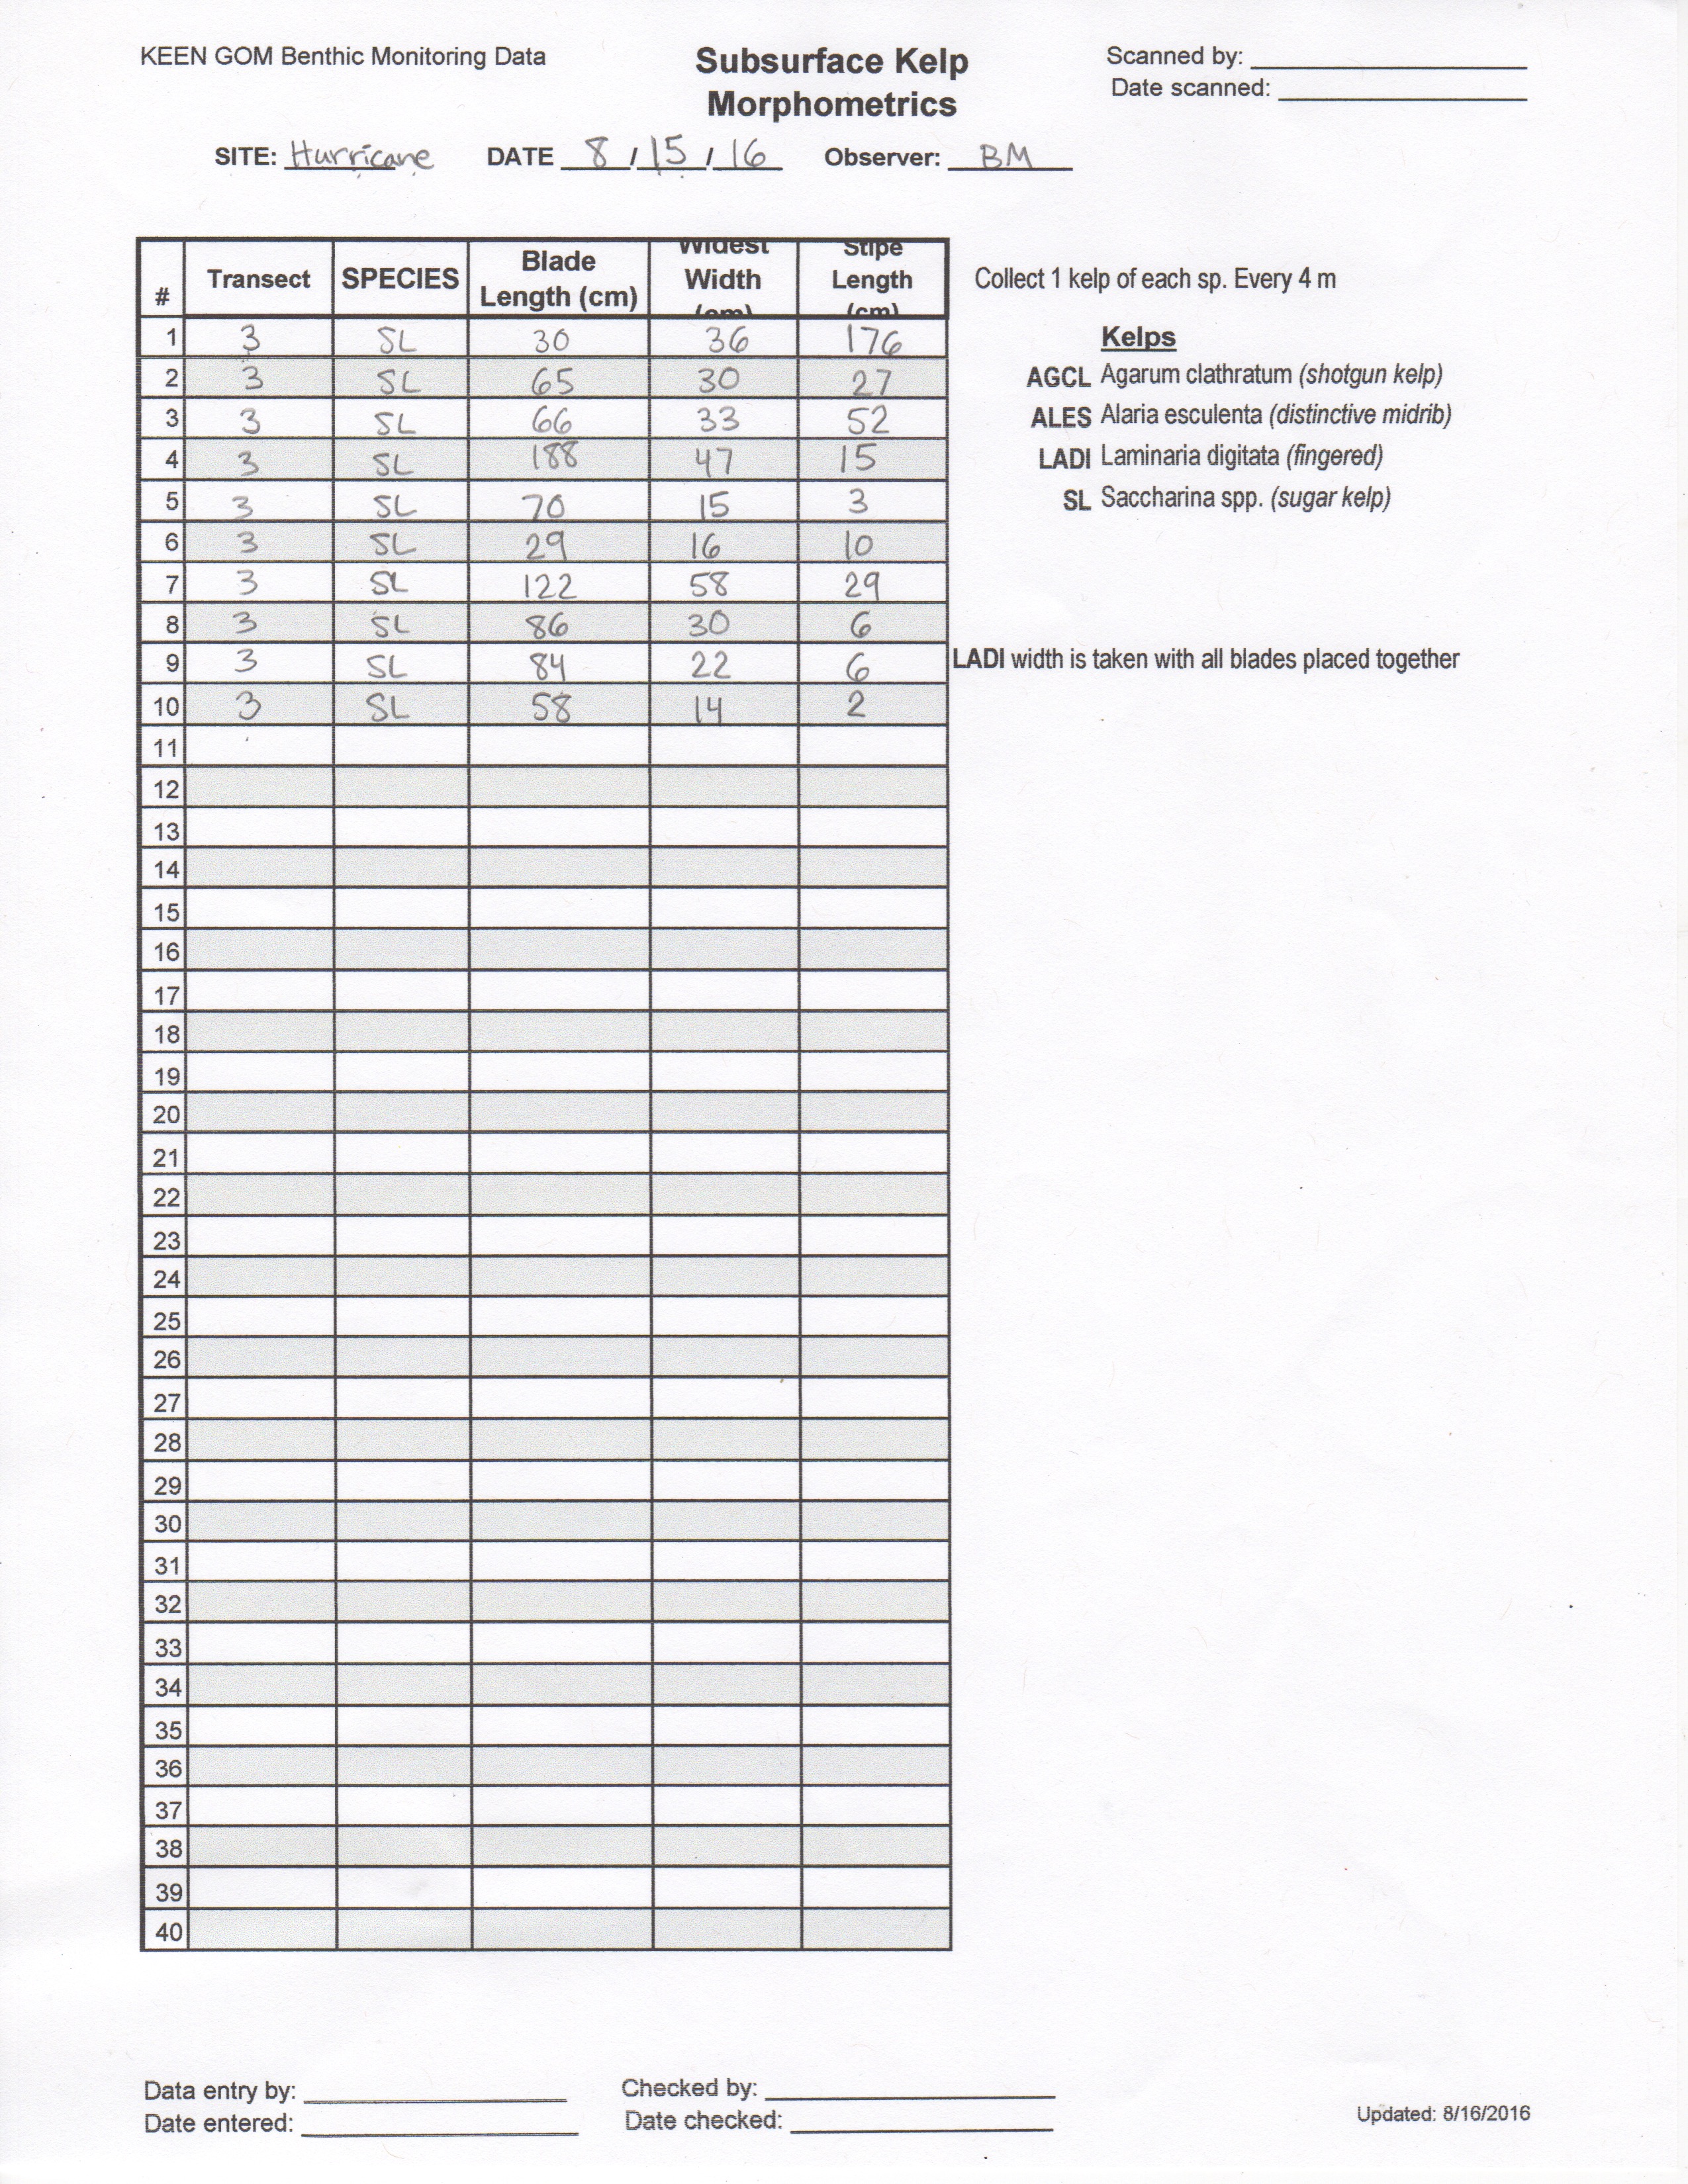 KEEN GOM Benthic Monitoring Data
Subsurface Kelp
Morphometrics
Scanned by:
Date scanned:
SITE: Hurricane DATE 8 / 15 / 16 Observer: BM
# Transect SPECIES Blade Length (cm) Widest Width (cm) Stipe Length (cm)
1 3 SL 30 36 176
2 3 SL 65 30 27
3 3 SL 66 33 52
4 3 SL 188 47 15
5 3 SL 70 15 3
6 3 SL 29 16 10
7 3 SL 122 58 29
8 3 SL 86 30 6
9 3 SL 84 22 6
10 3 SL 58 14 2
11
12
13
14
15
16
17
18
19
20
21
22
23
24
25
26
27
28
29
30
31
32
33
34
35
36
37
38
39
40
Collect 1 kelp of each sp. Every 4 m
Kelps
AGCL Agarum clathratum (shotgun kelp)
ALES Alaria esculenta (distinctive midrib)
LADI Laminaria digitata (fingered)
SL Saccharina spp. (sugar kelp)
LADI width is taken with all blades placed together
Data entry by:
Date entered:
Checked by:
Date checked:
Updated: 8/16/2016